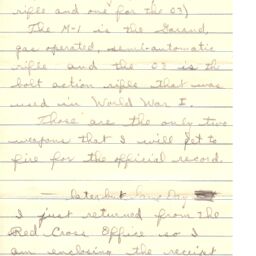 rifle and one for the 03)
The M-1 is the Garand,
gas operated, semi-automatic
rifle and the 03 is the
bolt action rifle that was
used in World War I.
Those are the only two
weapons that I will get to
fire for the official record.
— later but
I just returned from the
Red Cross Office so I
am enclosing the receipt